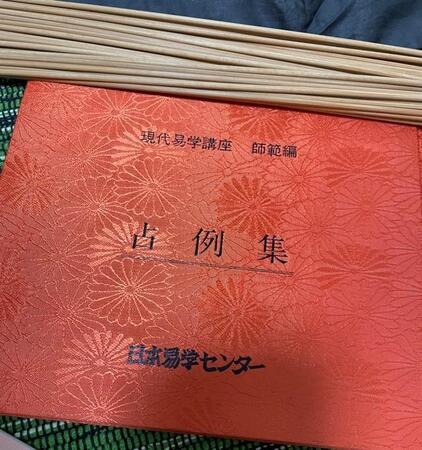 現代易学講座　師範編
占例集
日本易学センター